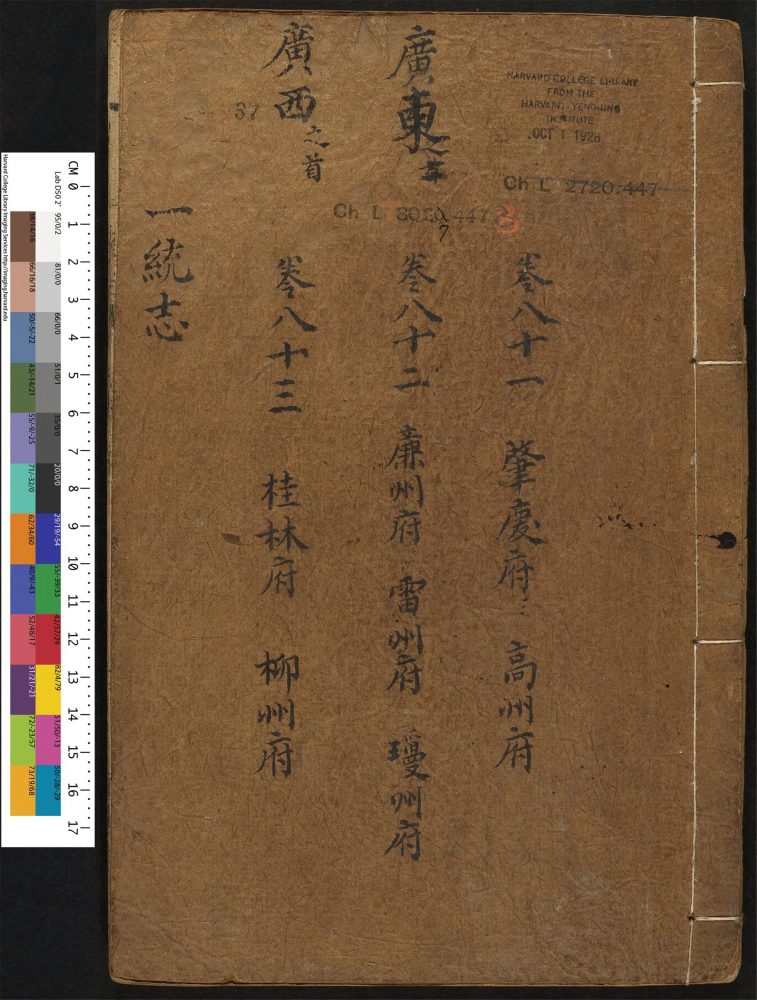 HARVARD COLLEGE LIBRARY
FROM THE
HARVARD-YENCHING
INSTITUTE
OCT 1 1928
Ch L 2720.447
廣東之
廣西之首
37
卷八十一 肇慶府 高州府
卷八十二 廉州府 雷州府 瓊州府
卷八十三 桂林府 柳州府
一統志
CM 0 1 2 3 4 5 6 7 8 9 10 11 12 13 14 15 16 17
Lab D50 2° 95/0/2 81/0/0 66/0/0 51/0/1 35/0/0 20/0/0 29/19/-54 55/-39/33 42/57/29 82/4/79 51/50/-13 50/-28/-29
38/14/16 66/16/18 50/-5/-22 43/-14/21 55/-9/-25 71/-32/0 62/34/60 40/9/-43 52/48/17 31/21/-21 72/-23/57 73/19/68
Harvard College Library Imaging Services http://imaging.harvard.edu